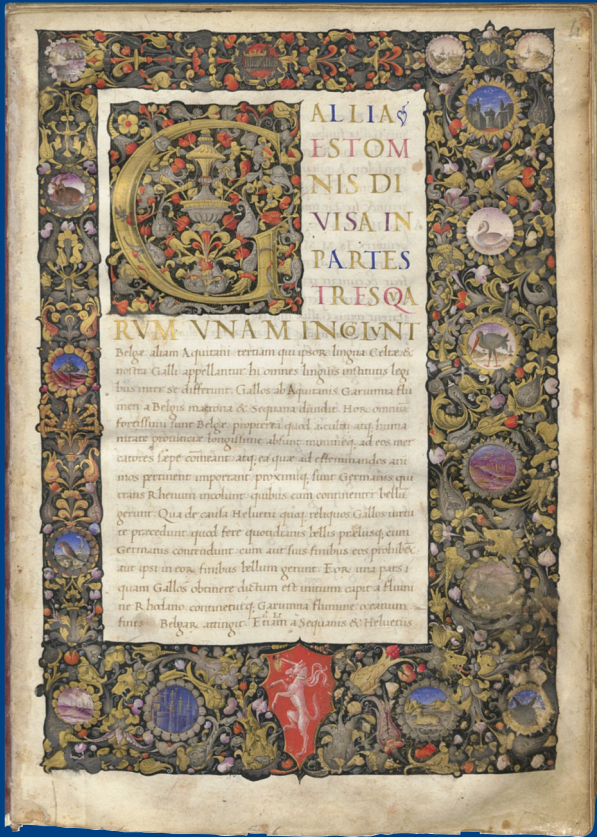 GALLIA
EST OM
NIS DI
VISA IN
PARTES
TRES QA
RVM VNAM INCOLVNT
Belgæ aliam Aquitani tertiam qui ipsoꝝ lingua Celtæ &
nostra Galli appellantur hi omnes linguis institutis leg
bus inter se differunt Gallos ab Aquitanis Garunna flu
men a Belgis matrona & Sequana diuidit Hoꝝ omniũ
fortissimi sunt Belgæ propterea quod a cultu atq; huma
nitate prouinciæ longissime absunt minimeq; ad eos mer
catores sæpe comeant atq; ea quæ ad effeminandos ani
mos pertinent important proximiq; sunt Germanis qui
trans Rhenum incolunt quibus cum continenter bellũ
gerunt Qua de causa Heluetii quoq; reliquos Gallos uirtu
te præcedunt quod fere quotidianis bellis præliisq; cum
Germanis contendunt cum aut suis finibus eos prohibẽt
aut ipsi in eoꝝ finibus bellum gerunt Eoꝝ una pars
quam Gallos obtinere dictum est initium capit a flumi
ne Rhodano contineturq; Garunna flumine oceanum
fines Belgaꝝ attingit Etiam a Sequanis & Heluetiis